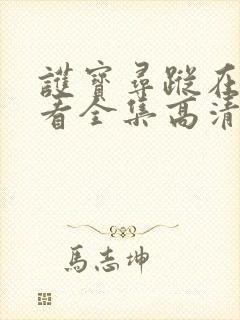 護寶尋蹤在
看全集高清
馬志坤